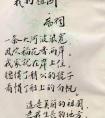 我的祖国
乔羽
一条大河波浪宽
风吹稻花香两岸
我家就在岸上住
听惯了艄公的号子
看惯了船上的白帆
这是美丽的祖国